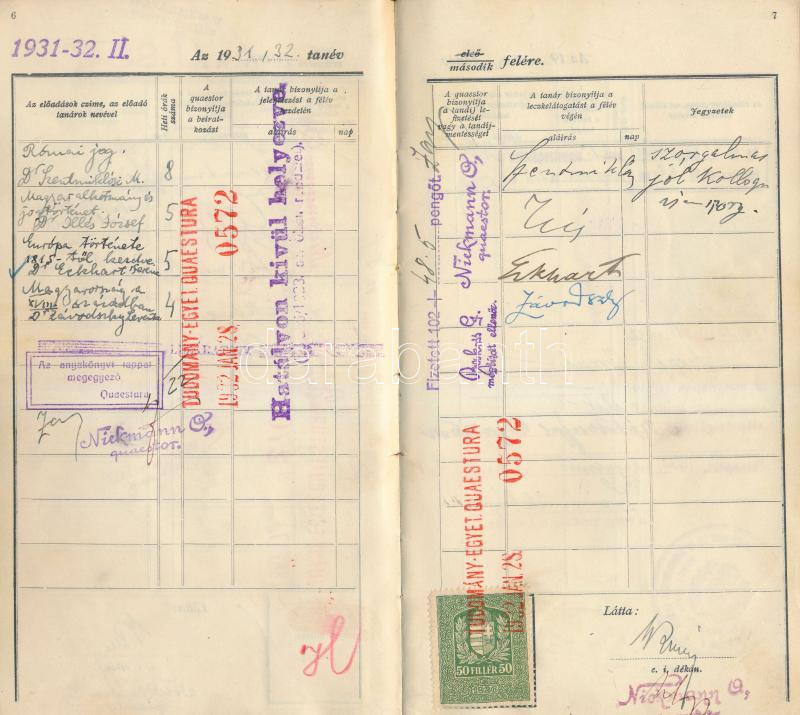 6
1931-32. II.
Az 1931/32. tanév
Az előadások czime, az előadó
tanárok nevével
Heti órák
száma
A
quaestor
bizonyitja
a beirat-
kozást
A tanár bizonyitja a
jelentkezést a félév
kezdetén
aláirás
nap
Római jog.
Dr Szentmiklósi M.
8
Magyar alkotmány és
jogtörténet.
Dr Illés József
5
Európa története
1815-től kezdve
Dr Eckhart Ferenc
5
Magyarország a
XVIII században
Dr Závodszky Levente
4
Az anyakönyvi lappal
megegyező
Quaestura
Nickmann O,
quaestor.
TUDOMÁNY-EGYET. QUAESTURA
1932 JAN. 28.
0572
Hatályon kivül helyezve.
7
első
második felére.
A quaestor
bizonyitja
a (tandij) le-
fizetését
vagy a tandij-
mentességet
A tanár bizonyitja a
leczkelátogatást a félév
végén
aláirás
nap
Jegyzetek
Fizetett 102 + 48.5 pengőt.
Nickmann O,
quaestor.
megbizott ellenőr.
Illés
Eckhart
Závodszky
szorgalmas
jól kollogu
TUDOMÁNY-EGYET. QUAESTURA
1932 JAN. 28.
0572
50 FILLÉR 50
Látta:
e. i. dékán.
Nickmann O,
darabanth